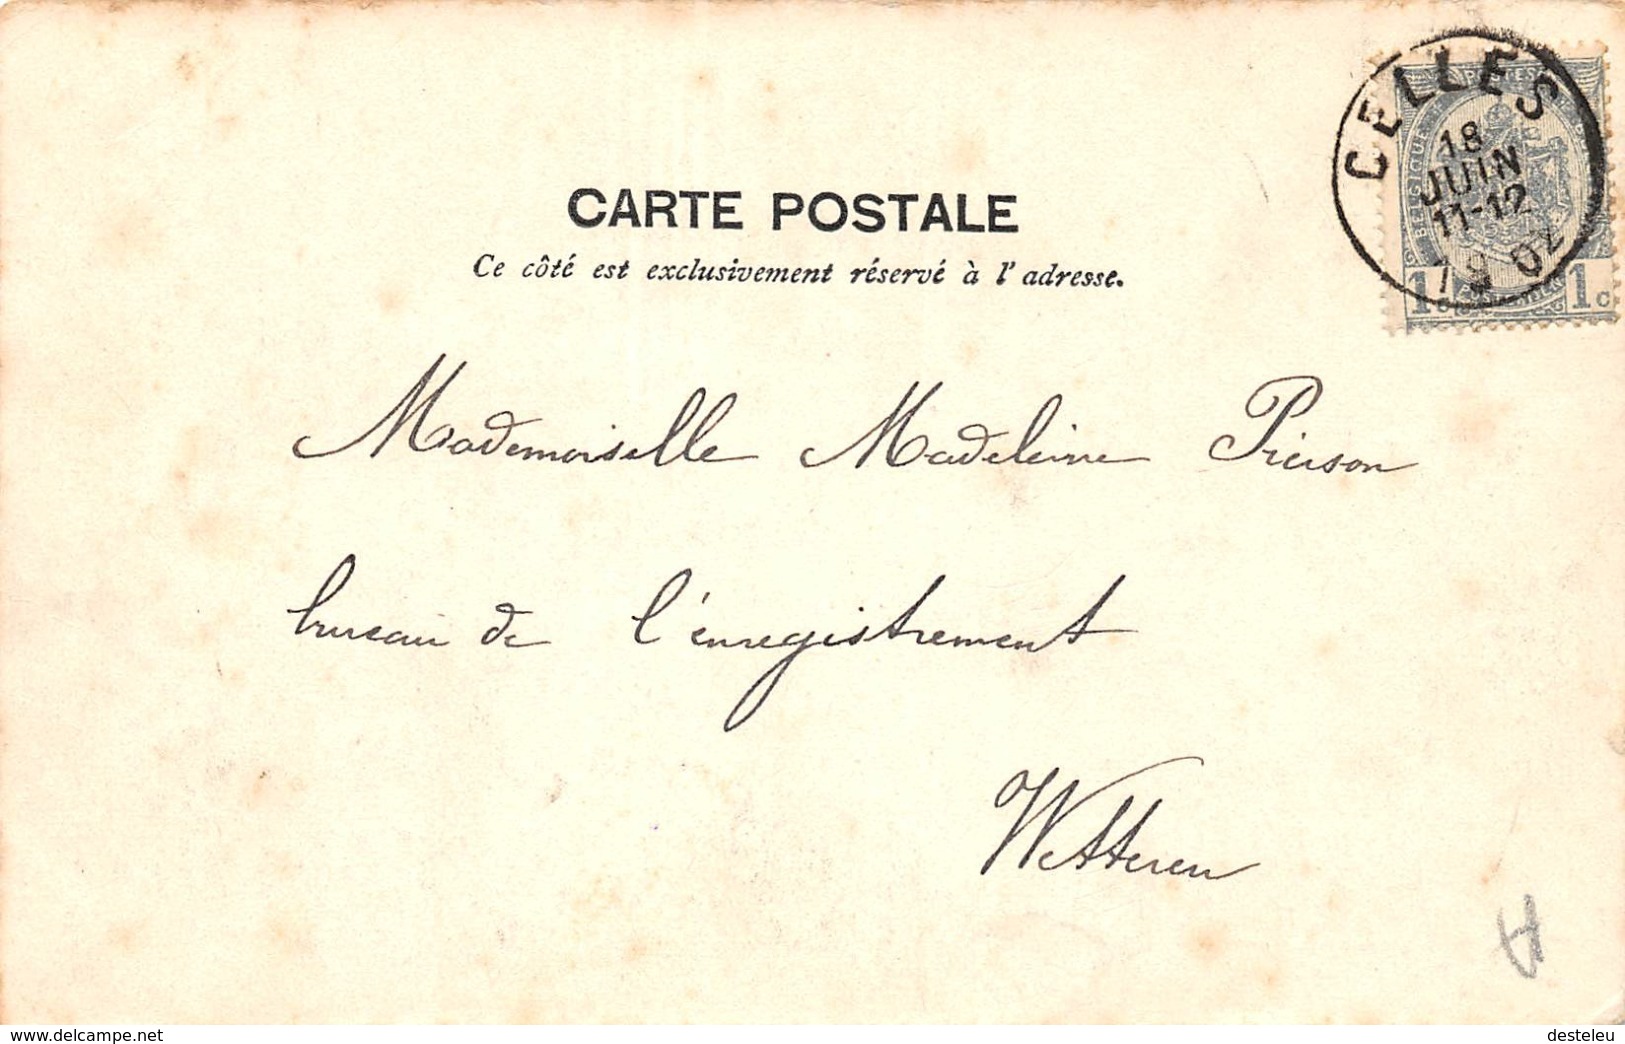 CELLES
18
JUIN
11-12
1902
POSTES
BELGIQUE
1c 1c
CARTE POSTALE
Ce côté est exclusivement réservé à l'adresse.
Mademoiselle Madeleine Pierson
bureau de l'énregistrement
Wetteren
www.delcampe.net
desteleu